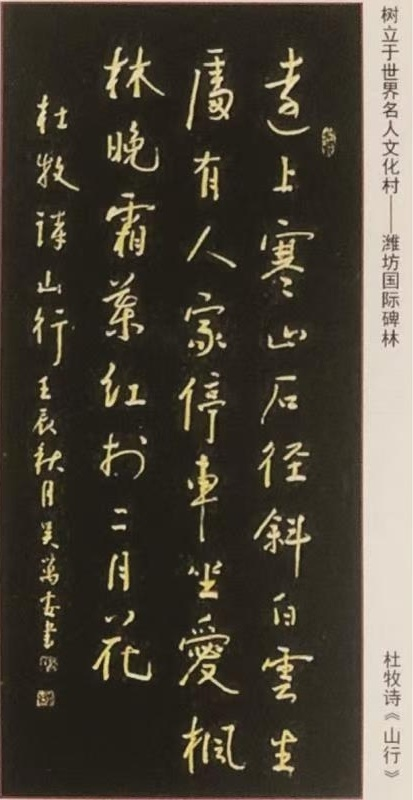 远上寒山石径斜白雲生
處有人家停車坐愛楓
林晚霜葉红於二月花
杜牧诗山行 壬辰秋月吴萬
树立于世界名人文化村——潍坊国际碑林
杜牧诗《山行》